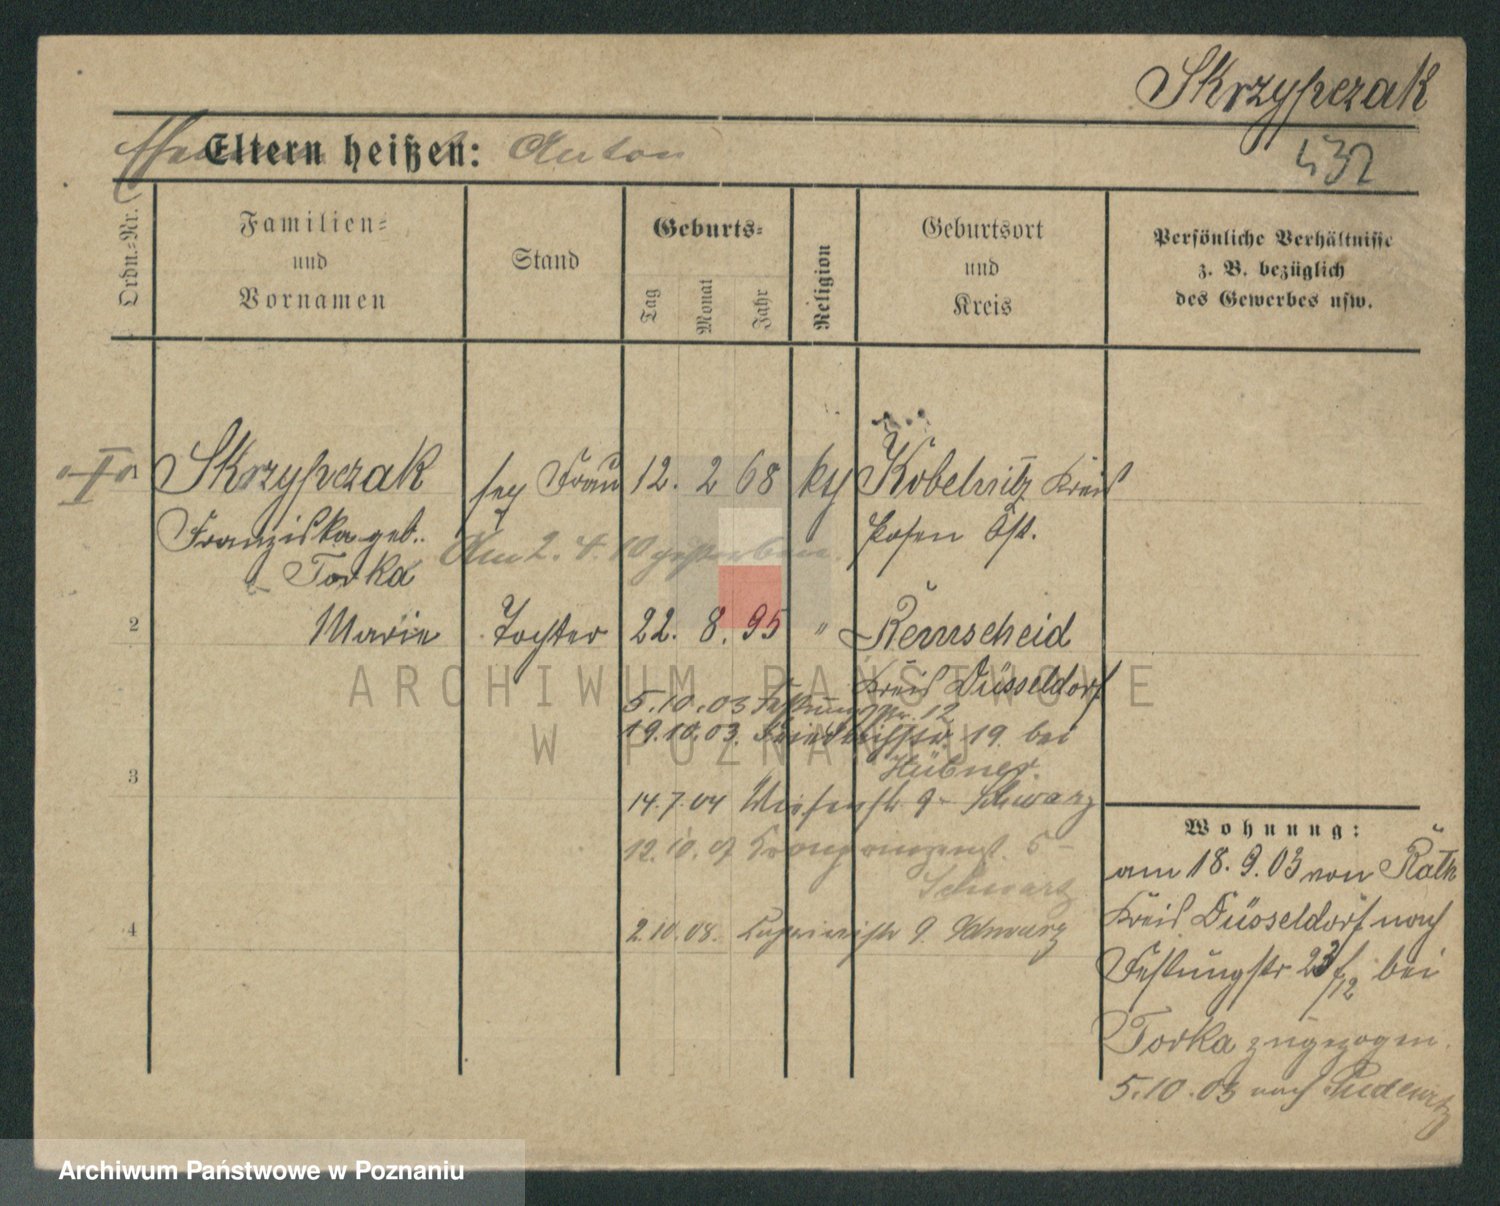 Skrzypczak
432
Eltern heißen: Anton
Ordn.-Nr.
Familien-
und
Vornamen
Stand
Geburts-
Tag
Monat
Jahr
Religion
Geburtsort
und
Kreis
Persönliche Verhältnisse
z. B. bezüglich
des Gewerbes usw.
I
Skrzypczak sep Frau 12. 2 68 kth Kobelnitz Kreis
Franziska geb. Posen Ost.
Am 2. 4. 10 gestorben.
Torka
2 Marie Tochter 22. 8. 95 " Remscheid
Kreis Düsseldorf
5.10.03 12
19.10.03. 19. bei
Hübner.
3
14.7.04 Wiesenstr 9 - Schwarz
12.10.07 5 -
Schwarz
4 2.10.08. 9. Schwarz
Wohnung:
am 18. 9. 03 von Rath
Kreis Düsseldorf nach
Festungstr 23/12 bei
Torka zugezogen.
5.10.03 nach Pudewitz
ARCHIWUM PAŃSTWOWE
W POZNANIU
Archiwum Państwowe w Poznaniu